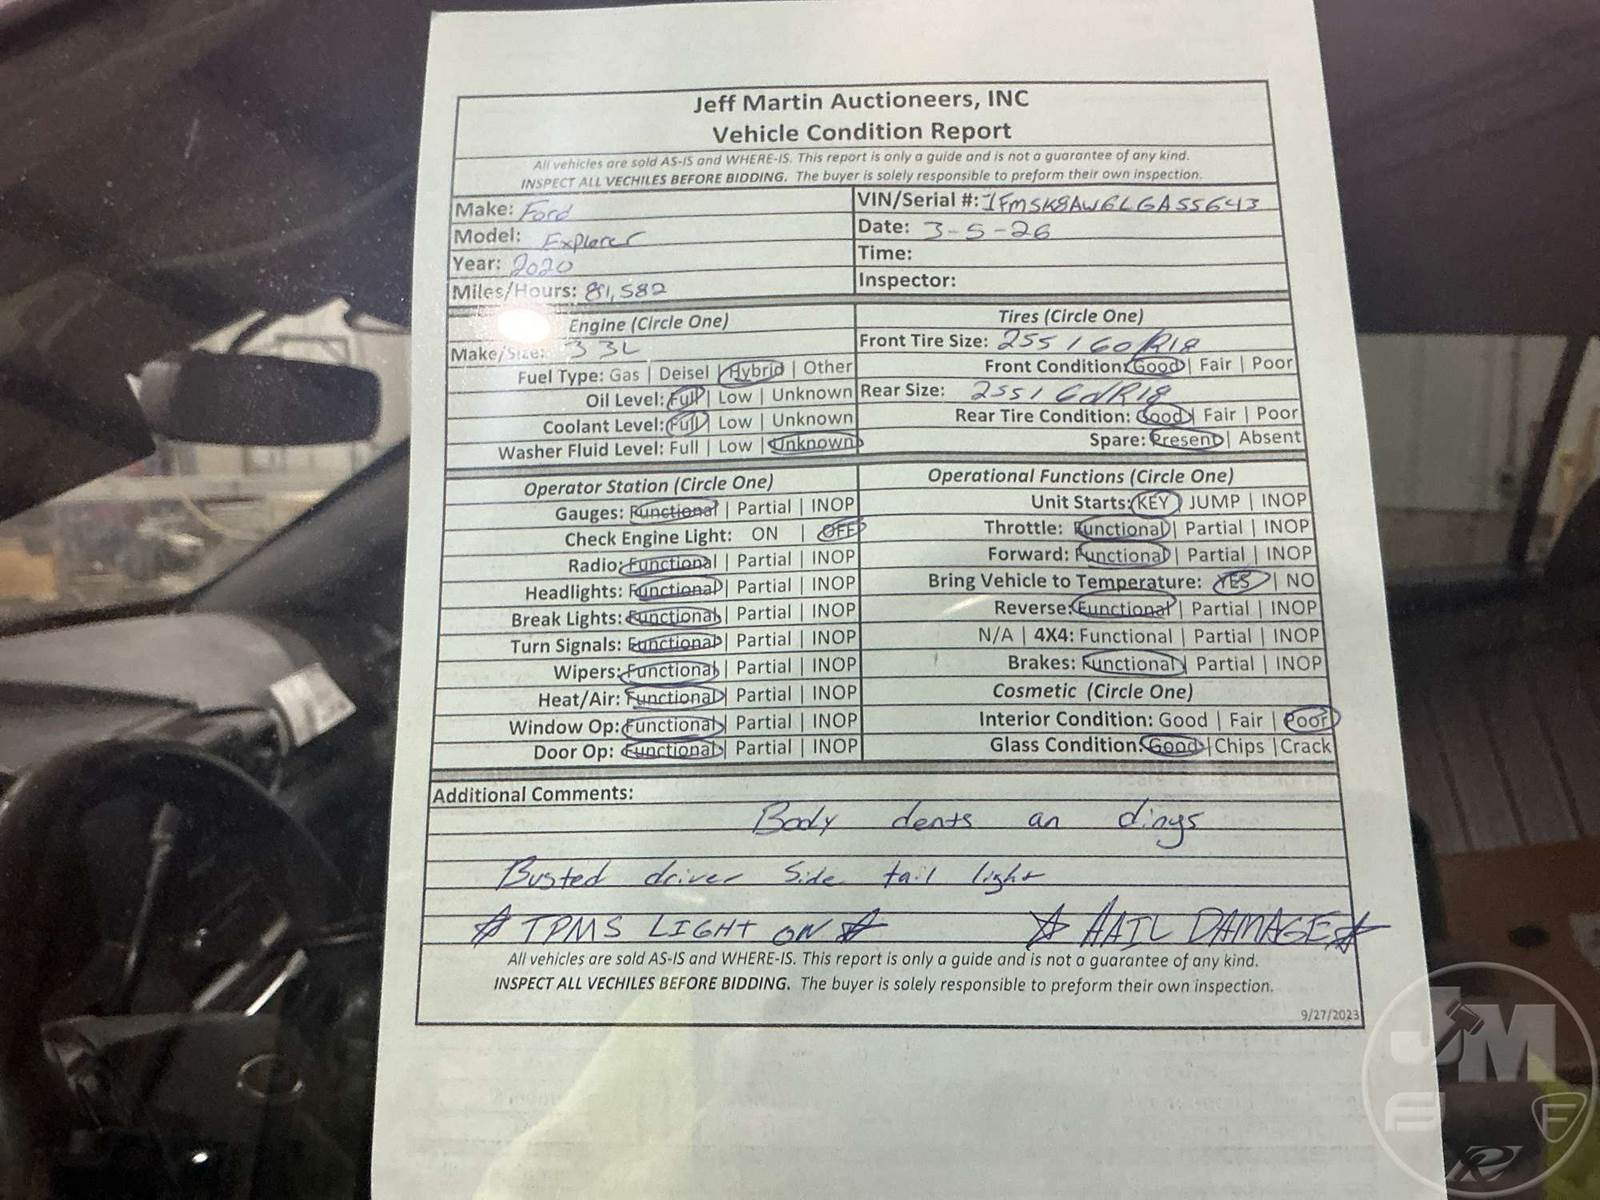 Jeff Martin Auctioneers, INC
Vehicle Condition Report
All vehicles are sold AS-IS and WHERE-IS. This report is only a guide and is not a guarantee of any kind.
INSPECT ALL VECHILES BEFORE BIDDING. The buyer is solely responsible to preform their own inspection.
Make: Ford
VIN/Serial #: 1FMSK8AW6LGA55643
Model: Explorer
Date: 3-5-26
Year: 2020
Time:
Miles/Hours: 81,582
Inspector:
Engine (Circle One)
Tires (Circle One)
Make/Size: 3 3L
Front Tire Size: 255/60/R18
Fuel Type: Gas | Deisel | Hybrid | Other
Front Condition: Good | Fair | Poor
Oil Level: Full | Low | Unknown
Rear Size: 255/60/R18
Coolant Level: Full | Low | Unknown
Rear Tire Condition: Good | Fair | Poor
Washer Fluid Level: Full | Low | Unknown
Spare: Present | Absent
Operator Station (Circle One)
Operational Functions (Circle One)
Gauges: Functional | Partial | INOP
Unit Starts: KEY | JUMP | INOP
Check Engine Light: ON | OFF
Throttle: Functional | Partial | INOP
Radio: Functional | Partial | INOP
Forward: Functional | Partial | INOP
Headlights: Functional | Partial | INOP
Bring Vehicle to Temperature: YES | NO
Break Lights: Functional | Partial | INOP
Reverse: Functional | Partial | INOP
Turn Signals: Functional | Partial | INOP
N/A | 4X4: Functional | Partial | INOP
Wipers: Functional | Partial | INOP
Brakes: Functional | Partial | INOP
Heat/Air: Functional | Partial | INOP
Cosmetic (Circle One)
Window Op: Functional | Partial | INOP
Interior Condition: Good | Fair | Poor
Door Op: Functional | Partial | INOP
Glass Condition: Good | Chips | Crack
Additional Comments:
Body dents an dings
Busted driver side tail light
☆ TPMS LIGHT ON ☆ ☆ HAIL DAMAGE ☆
All vehicles are sold AS-IS and WHERE-IS. This report is only a guide and is not a guarantee of any kind.
INSPECT ALL VECHILES BEFORE BIDDING. The buyer is solely responsible to preform their own inspection.
9/27/2023
JM